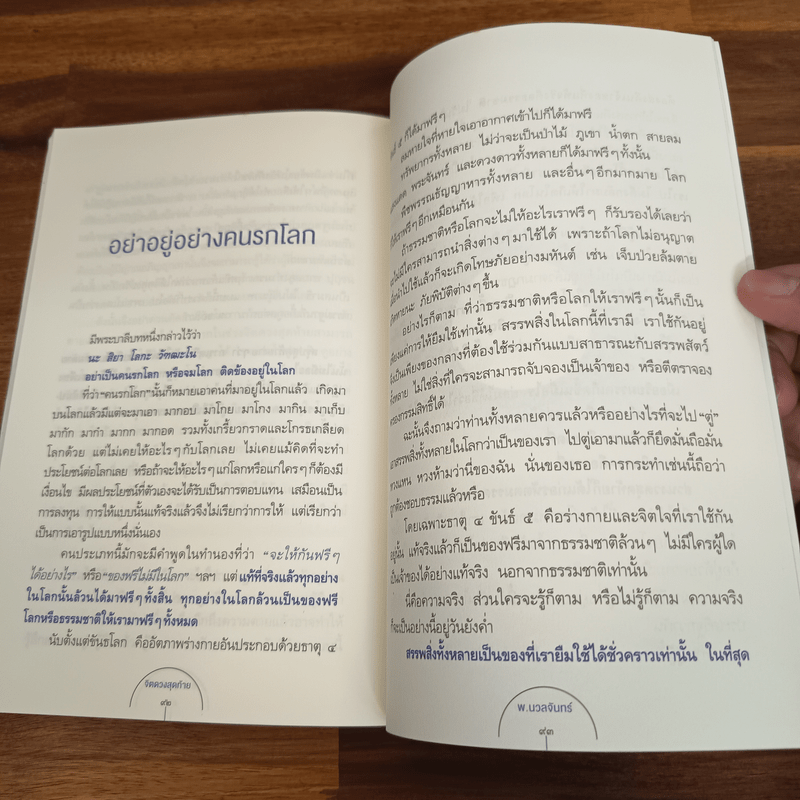 อย่าอยู่อย่างคนรกโลก
มีพระบาลีบทหนึ่งกล่าวไว้ว่า
นะ สิยา โลกะ วัฑฒะโน
อย่าเป็นคนรกโลก หรือจมโลก ติดข้องอยู่ในโลก
ที่ว่า“คนรกโลก”นั้นก็หมายเอาคนที่มาอยู่ในโลกแล้ว เกิดมา
บนโลกแล้วมีแต่จะมาเอา มากอบ มาโกย มาโกง มากิน มาเก็บ
มากัก มากำ มากก มากอด รวมทั้งเกรี้ยวกราดและโกรธเกลียด
โลกด้วย แต่ไม่เคยให้อะไรๆกับโลกเลย ไม่เคยแม้คิดที่จะทำ
ประโยชน์ต่อโลกเลย หรือถ้าจะให้อะไรๆแก่โลกหรือแก่ใครๆก็ต้องมี
เงื่อนไข มีผลประโยชน์ที่ตัวเองจะได้รับเป็นการตอบแทน เสมือนเป็น
การลงทุน การให้แบบนั้นแท้จริงแล้วจึงไม่เรียกว่าการให้ แต่เรียกว่า
เป็นการเอารูปแบบหนึ่งนั่นเอง
คนประเภทนี้มักจะมีคำพูดในทำนองที่ว่า “จะให้กันฟรีๆ
ได้อย่างไร” หรือ“ของฟรีไม่มีในโลก” ฯลฯ แต่แท้ที่จริงแล้วทุกอย่าง
ในโลกนั้นล้วนได้มาฟรีๆทั้งสิ้น ทุกอย่างในโลกล้วนเป็นของฟรี
โลกหรือธรรมชาติให้เรามาฟรีๆทั้งหมด
นับตั้งแต่ขันธโลก คืออัตภาพร่างกายอันประกอบด้วยธาตุ ๔
จิตดวงสุดท้าย
๙๒
๕ ก็ได้มาฟรีๆ
ลมหายใจที่หายใจเอาอากาศเข้าไปก็ได้มาฟรี
ทรัพยากรทั้งหลาย ไม่ว่าจะเป็นป่าไม้ ภูเขา น้ำตก สายลม
พระจันทร์ และดวงดาวทั้งหลายก็ได้มาฟรีๆทั้งนั้น
พืชพรรณธัญญาหารทั้งหลาย และอื่นๆอีกมากมาย โลก
ฟรีๆอีกเหมือนกัน
ถ้าธรรมชาติหรือโลกจะไม่ให้อะไรเราฟรีๆ ก็รับรองได้เลยว่า
ไม่มีใครสามารถนำสิ่งต่างๆมาใช้ได้ เพราะถ้าโลกไม่อนุญาต
นำไปใช้แล้วก็จะเกิดโทษภัยอย่างมหันต์ เช่น เจ็บป่วยล้มตาย
ภัยพิบัติต่างๆขึ้น
อย่างไรก็ตาม ที่ว่าธรรมชาติหรือโลกให้เราฟรีๆนั้นก็เป็น
เพียงแค่การให้ยืมใช้เท่านั้น สรรพสิ่งในโลกนี้ที่เรามี เราใช้กันอยู่
เป็นเพียงของกลางที่ต้องใช้ร่วมกันแบบสาธารณะกับสรรพสัตว์
ไม่ใช่สิ่งที่ใครจะสามารถจับจองเป็นเจ้าของ หรือตีตราจอง
กรรมสิทธิ์ได้
ฉะนั้นจึงถามว่าท่านทั้งหลายควรแล้วหรืออย่างไรที่จะไป“ตู่”
สรรพสิ่งทั้งหลายในโลกว่าเป็นของเรา ไปตู่เอามาแล้วก็ยึดมั่นถือมั่น
หวงแหน หวงห้ามว่านี่ของฉัน นั่นของเธอ การกระทำเช่นนี้ถือว่า
ถูกต้องชอบธรรมแล้วหรือ
โดยเฉพาะธาตุ ๔ ขันธ์ ๕ คือร่างกายและจิตใจที่เราใช้กัน
อยู่นั้น แท้จริงแล้วก็เป็นของฟรีมาจากธรรมชาติล้วนๆ ไม่มีใครผู้ใด
เป็นเจ้าของได้อย่างแท้จริง นอกจากธรรมชาติเท่านั้น
นี่คือความจริง ส่วนใครจะรู้ก็ตาม หรือไม่รู้ก็ตาม ความจริง
ก็จะเป็นอย่างนี้อยู่วันยังค่ำ
สรรพสิ่งทั้งหลายเป็นของที่เรายืมใช้ได้ชั่วคราวเท่านั้น ในที่สุด
พ.นวลจันทร์
๙๓